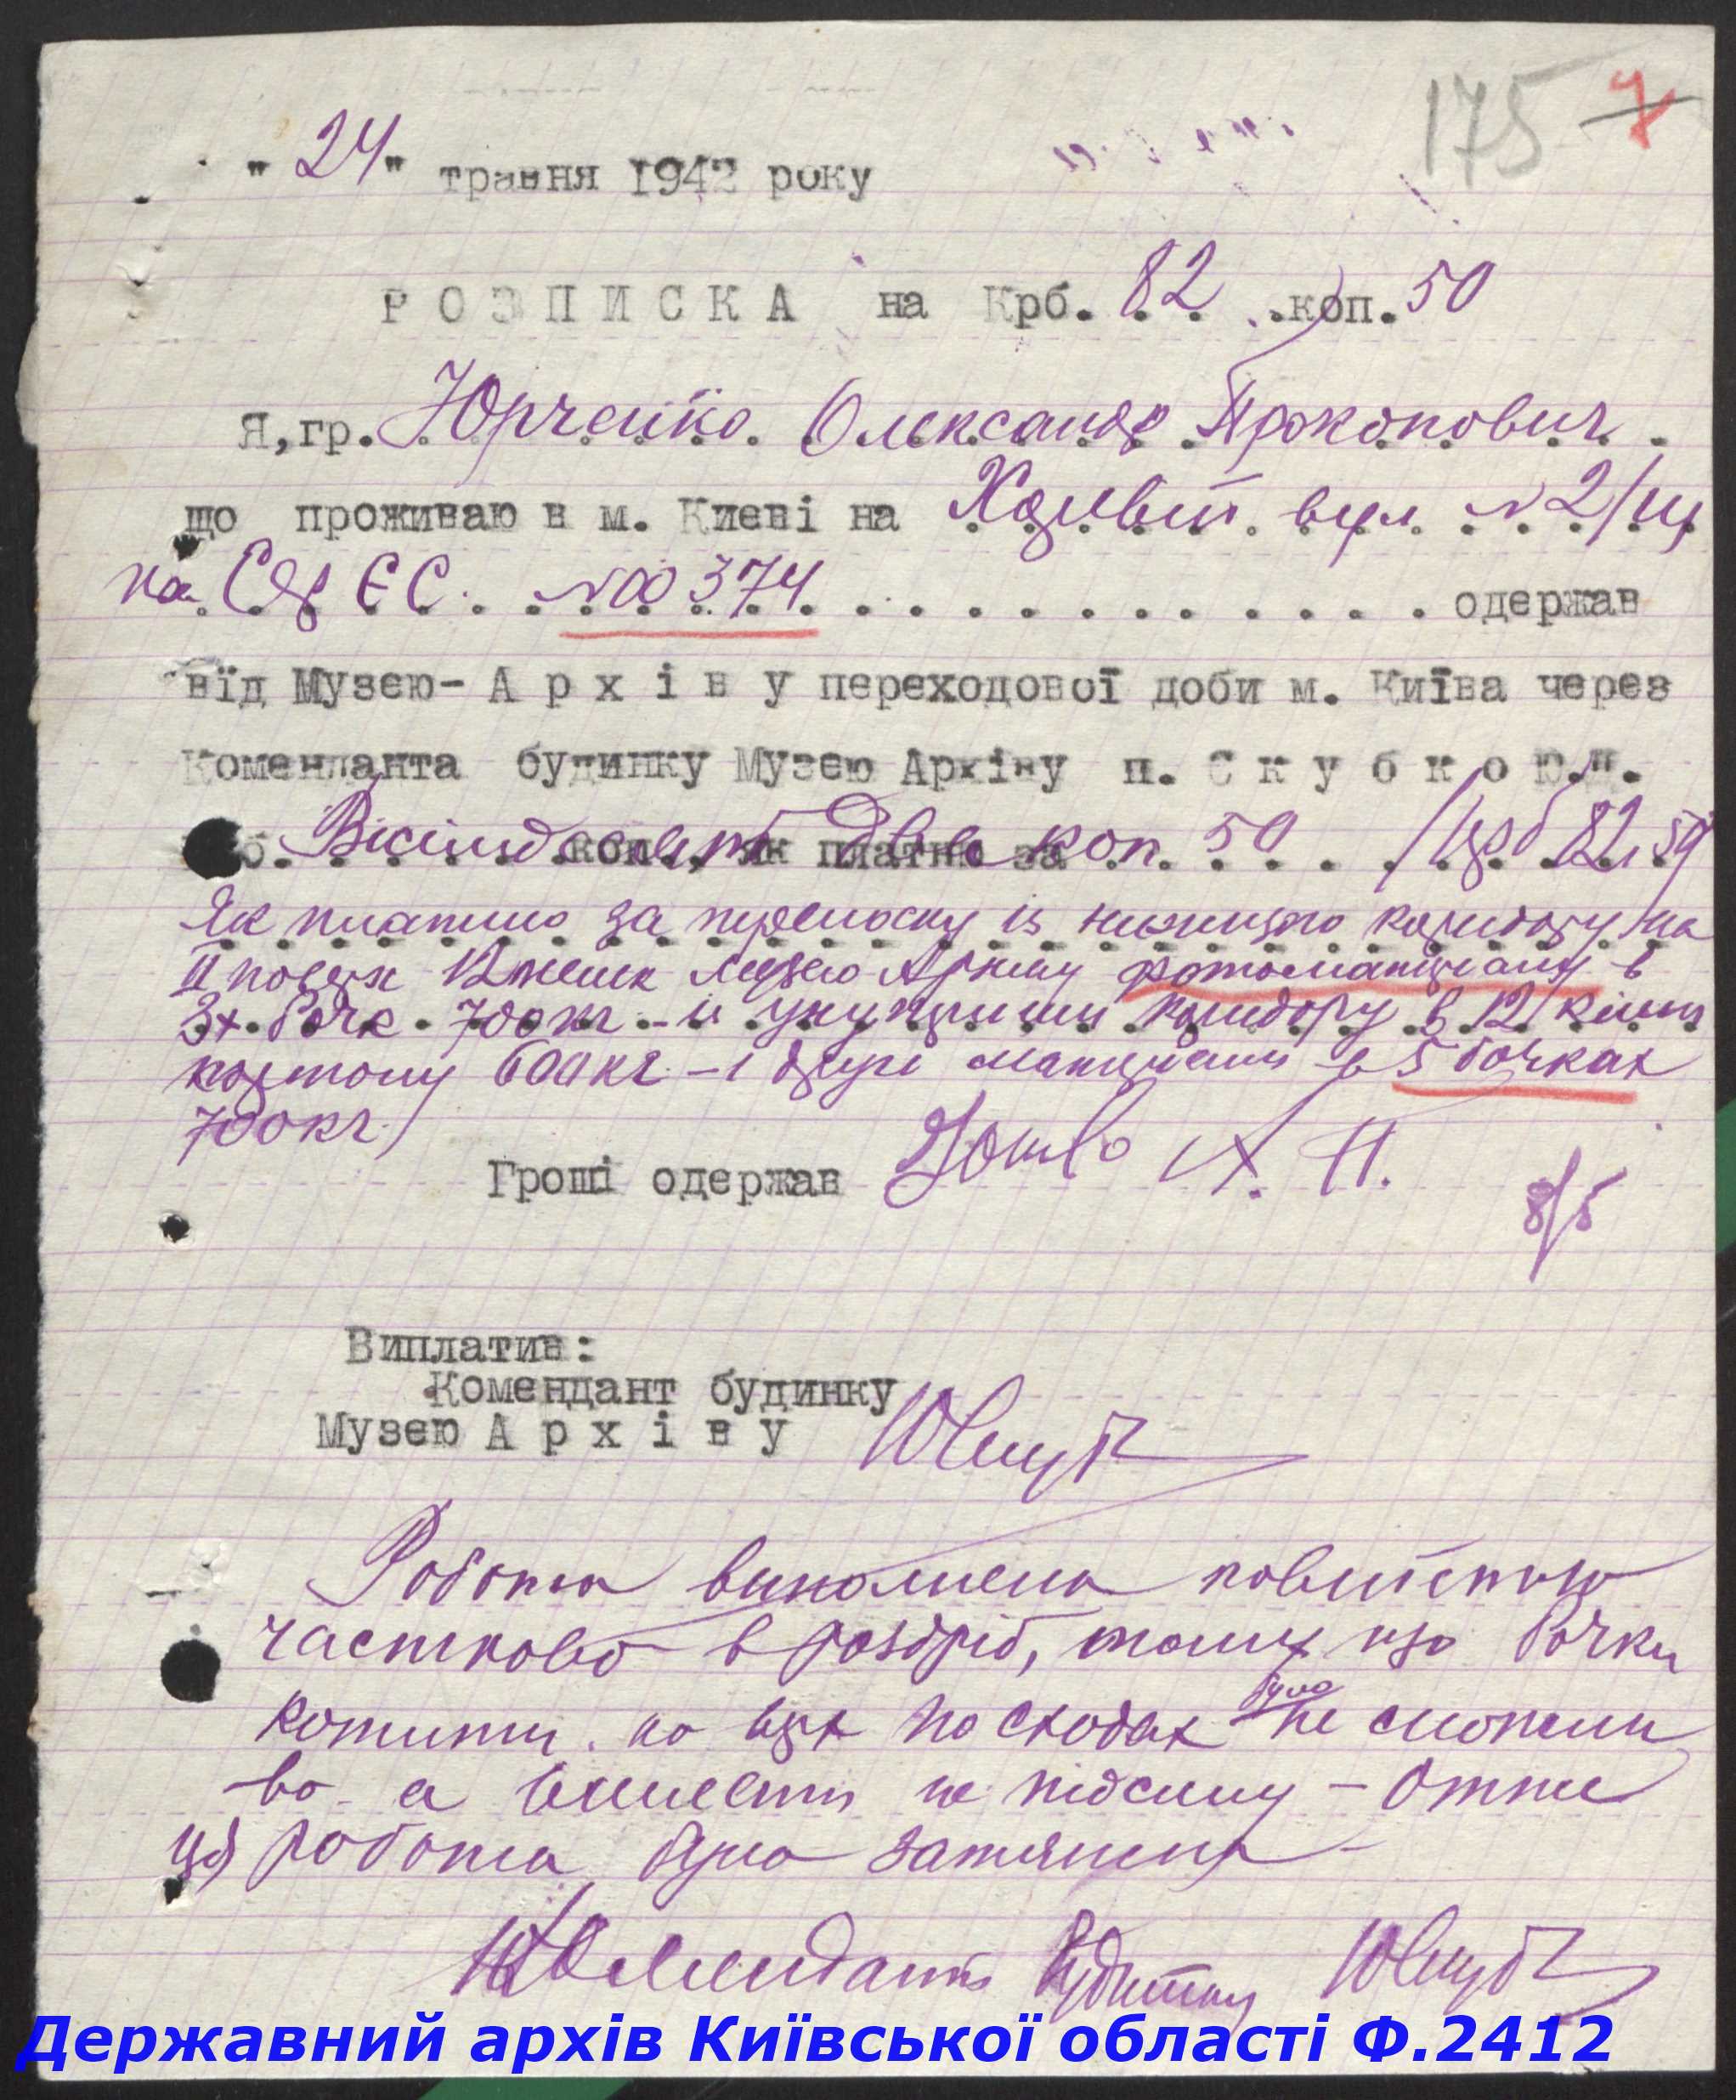 175 7
" 24 " травня 1942 року
РОЗПИСКА на Крб. 82 коп. 50
Я, гр. Юрченко Олександр Прокопович
що проживаю в м. Києві на вул. № 2/
на № 00374 одержав
від Музею-Архіву переходової доби м. Київа через
Коменданта будинку Музею Архіву п. Скубко Ю.Ц.
Вісімдесят дві коп 50 /крб 82, 50/
коп., як платню за
Як платню за переноску із нижнього коридору на
II поверх 12 Музею Архіву фотоматеріалу в
3х бочк 700 кг - и коридору в 12
картону 600 кг - і другі матеріали в 5 бочках
700 кг.)
Гроші одержав
8/5
Виплатив:
Комендант будинку
Музею Архіву
Робота виконана повністю
частково в роздріб, тому що бочки
котити по сходах було не можли
во а внести не підсилу - Отже
ця робота була затяжна
Комендант будинку
Державний архів Київської області Ф.2412